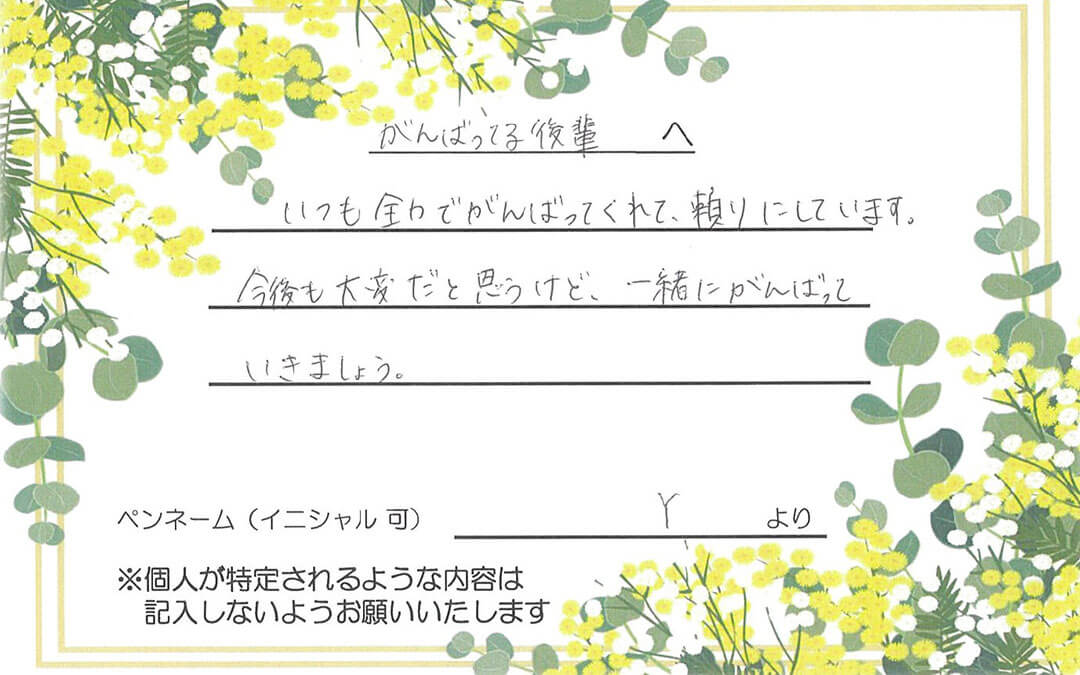 がんばってる後輩 へ
いつも全力でがんばってくれて、頼りにしています。
今後も大変だと思うけど、一緒にがんばって
いきましょう。
ペンネーム（イニシャル 可） Y より
※個人が特定されるような内容は
記入しないようお願いいたします